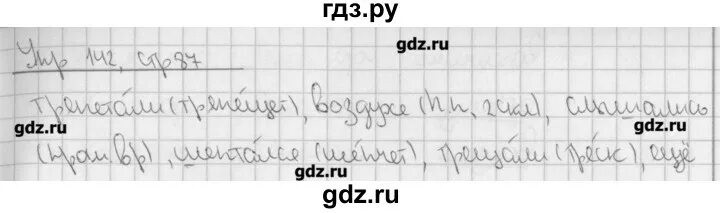 гдз.ру
Упр 142, стр 87
gdz.ru
трепетали (трепещет), воздухе (П.п, 2 скл), слышались
gdz.ru
gdz.ru
(прош вр), шептался (шепчет), трещали (треск), ещё
gdz.ru
gdz.ru